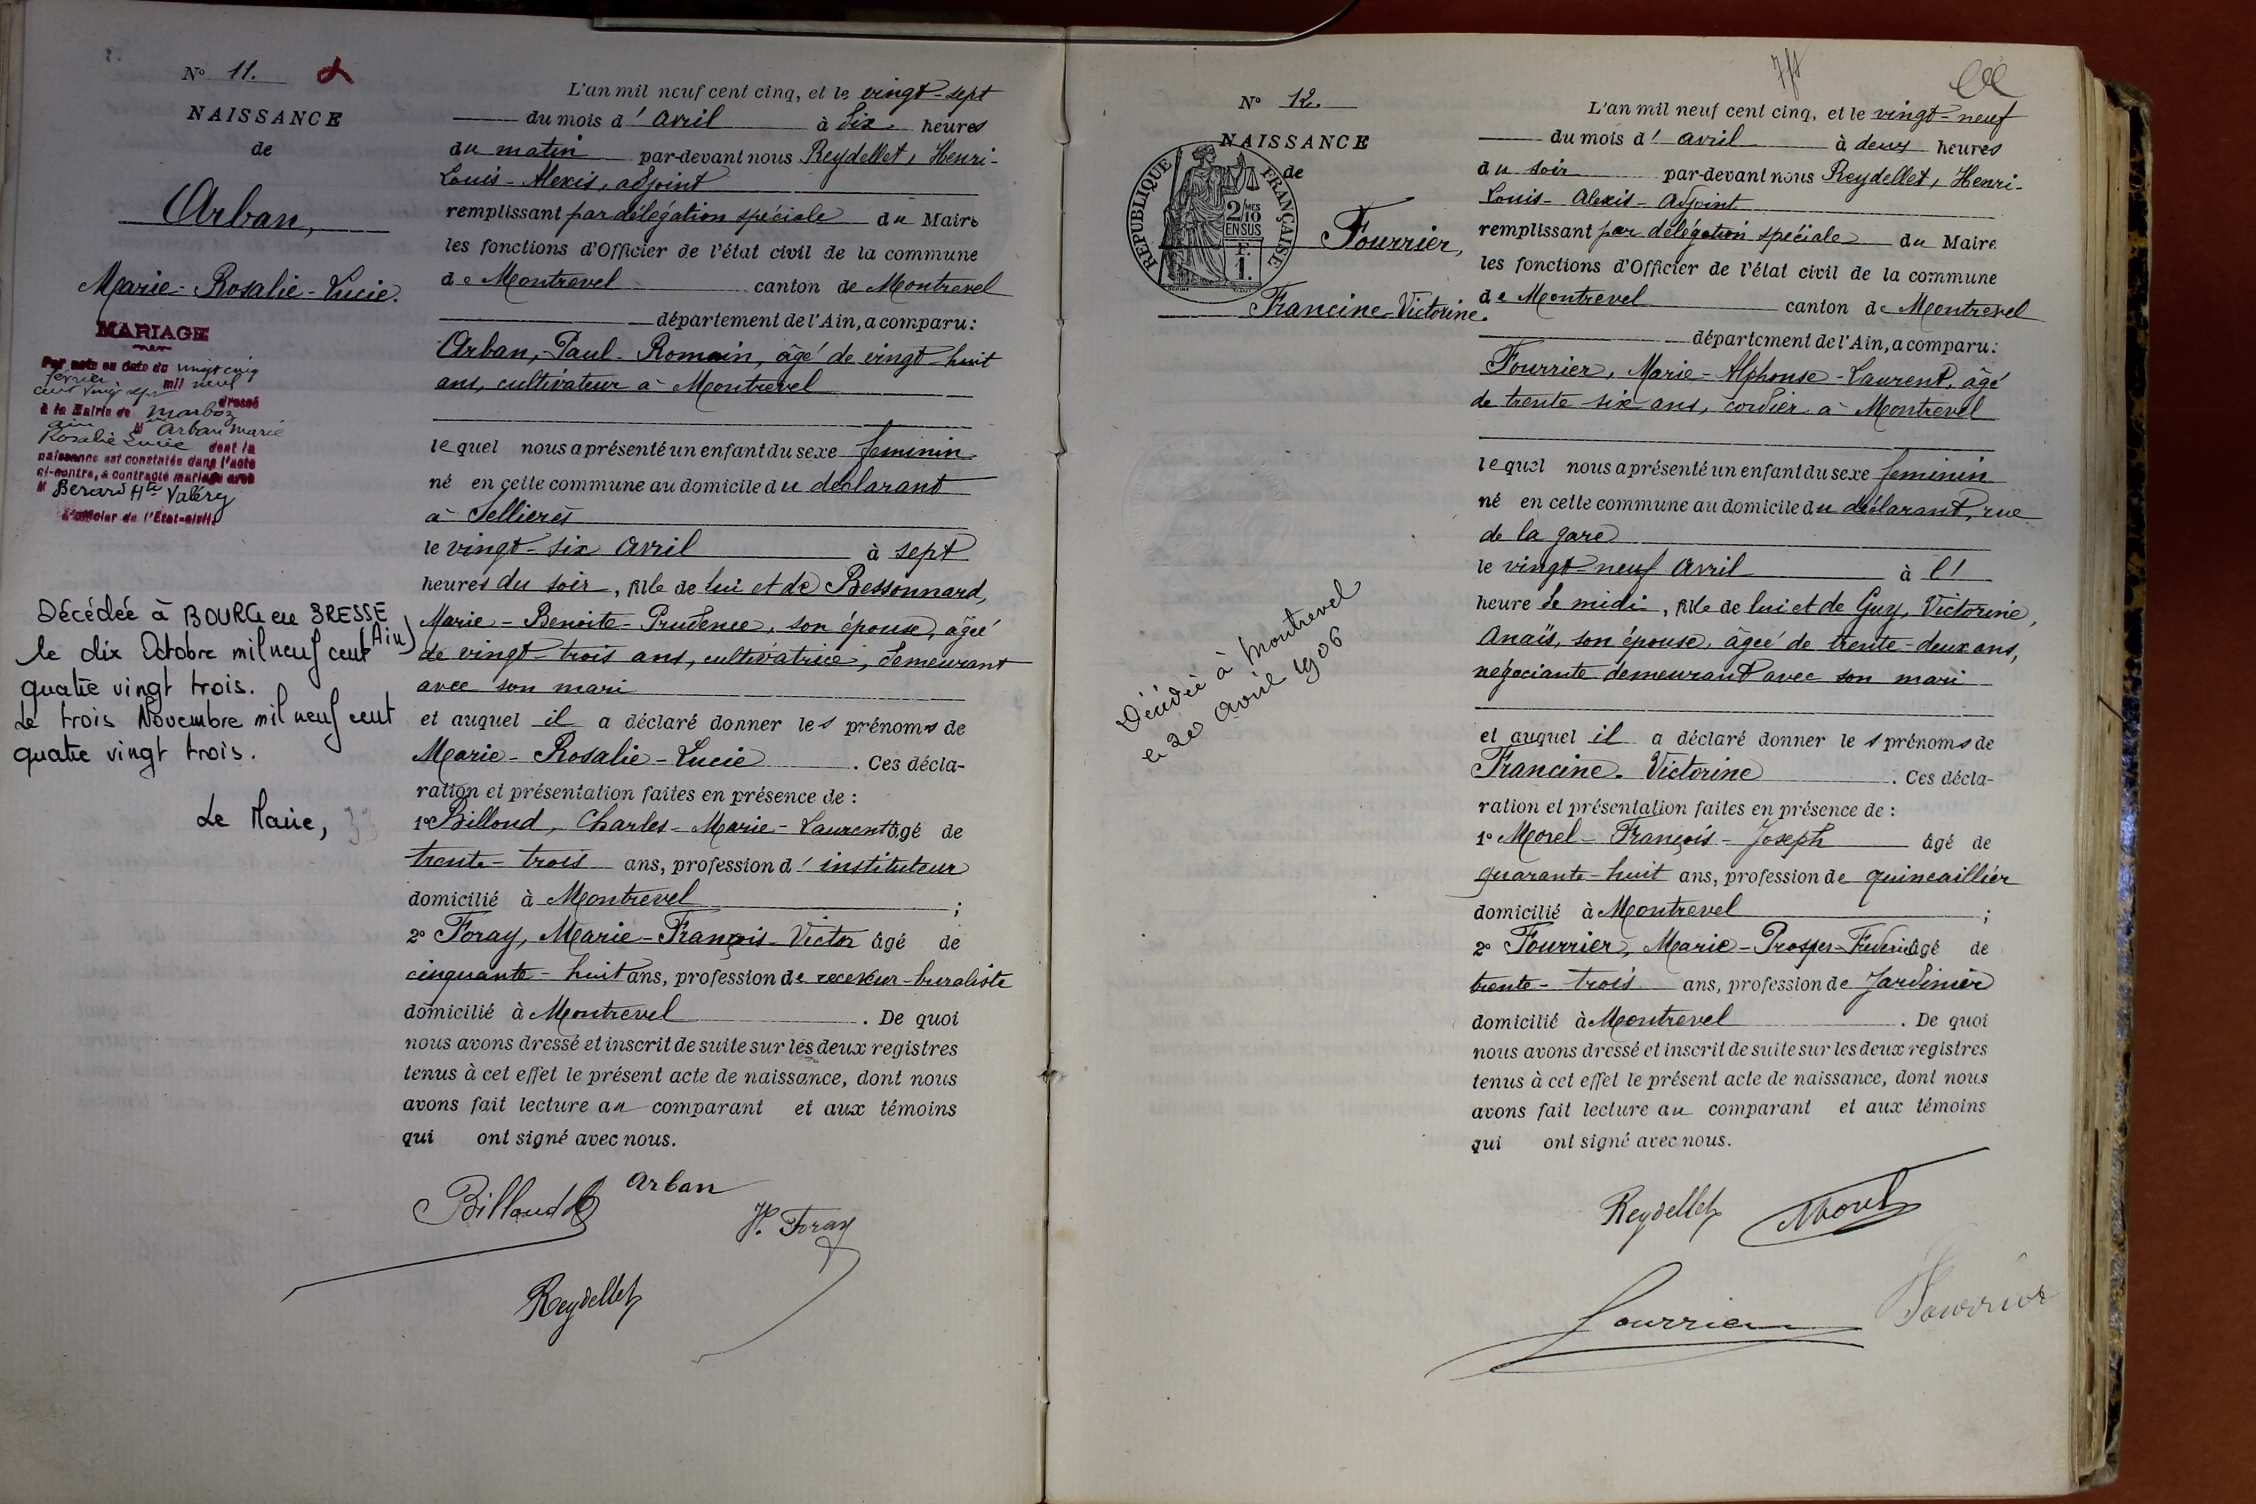 N° 11.
NAISSANCE
de
Arban,
Marie-Rosalie-Lucie.
MARIAGE
Par acte en date du vingt cinq
février mil neuf
cent vingt sept dressé
à la Mairie de Marboz
Ain M Arban Marie
Rosalie Lucie dont la
naissance est constatée dans l'acte
ci-contre, a contracté mariage avec
M Berard Hte Valéry
L'officier de l'Etat-civil
Décédée à BOURG en BRESSE
(Ain)
le dix Octobre mil neuf cent
quatre vingt trois.
Le trois Novembre mil neuf cent
quatre vingt trois.
Le Maire,
L'an mil neuf cent cinq, et le vingt-sept
du mois d'avril à dix heures
du matin par-devant nous Reydellet, Henri-
Louis-Alexis, adjoint
remplissant par délégation spéciale du Maire
les fonctions d'Officier de l'état civil de la commune
de Montrevel canton de Montrevel
département de l'Ain, a comparu:
Arban, Paul-Romain, âgé de vingt-huit
ans, cultivateur à Montrevel
lequel nous a présenté un enfant du sexe feminin
né en cette commune au domicile du déclarant
à Sellières
le vingt-six avril à sept
heures du soir, fille de lui et de Bessonnard,
Marie-Benoite-Prudence, son épouse, âgée
de vingt-trois ans, cultivatrice, demeurant
avec son mari
et auquel il a déclaré donner les prénoms de
Marie-Rosalie-Lucie. Ces décla-
ration et présentation faites en présence de :
1° Billoud, Charles-Marie-Laurent âgé de
trente-trois ans, profession d'instituteur
domicilié à Montrevel ;
2° Foray, Marie-François-Victor âgé de
cinquante-huit ans, profession de receveur-buraliste
domicilié à Montrevel. De quoi
nous avons dressé et inscrit de suite sur les deux registres
tenus à cet effet le présent acte de naissance, dont nous
avons fait lecture au comparant et aux témoins
qui ont signé avec nous.
Billoud
Arban
V. Foray
Reydellet
N° 12.
NAISSANCE
de
REPUBLIQUE FRANÇAISE
2/10 MES
EN SUS
F.
1.
Fourrier,
Francine-Victorine.
Décédée à Montrevel
le 20 avril 1906
L'an mil neuf cent cinq, et le vingt-neuf
du mois d'avril à deux heures
du soir par-devant nous Reydellet, Henri-
Louis-Alexis-Adjoint
remplissant par délégation spéciale du Maire
les fonctions d'Officier de l'état civil de la commune
de Montrevel canton de Montrevel
département de l'Ain, a comparu:
Fourrier, Marie-Alphonse-Laurent, âgé
de trente six ans, cordier à Montrevel
lequel nous a présenté un enfant du sexe feminin
né en cette commune au domicile du déclarant, rue
de la gare
le vingt-neuf avril à l'
heure de midi, fille de lui et de Guy, Victorine,
Anaïs, son épouse, âgée de trente-deux ans,
négociante demeurant avec son mari
et auquel il a déclaré donner les prénoms de
Francine-Victorine. Ces décla-
ration et présentation faites en présence de :
1° Morel-François-Joseph âgé de
quarante-huit ans, profession de quincaillier
domicilié à Montrevel ;
2° Fourrier, Marie-Prosper-Frédéric âgé de
trente-trois ans, profession de Jardinier
domicilié à Montrevel. De quoi
nous avons dressé et inscrit de suite sur les deux registres
tenus à cet effet le présent acte de naissance, dont nous
avons fait lecture au comparant et aux témoins
qui ont signé avec nous.
Reydellet
Morel
Fourrier
Fourrier